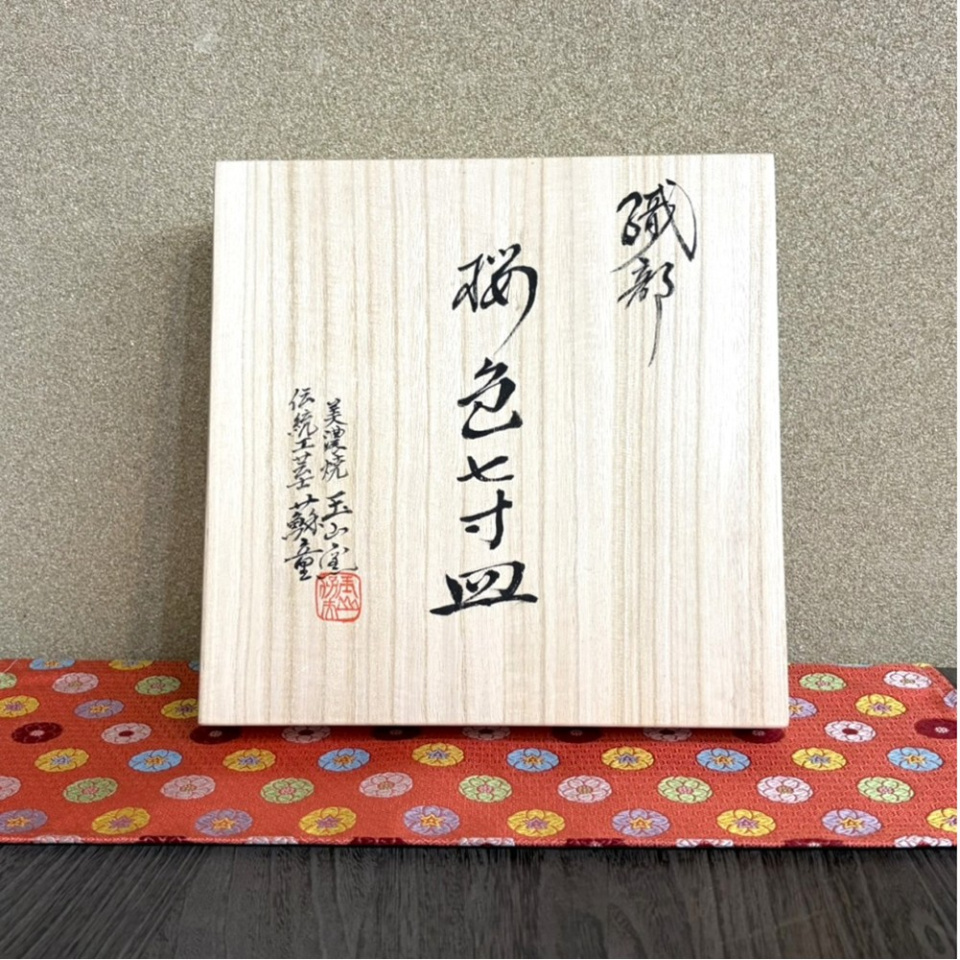 織部
桜色七寸皿
美濃焼 玉山窯
伝統工芸士 蘇童